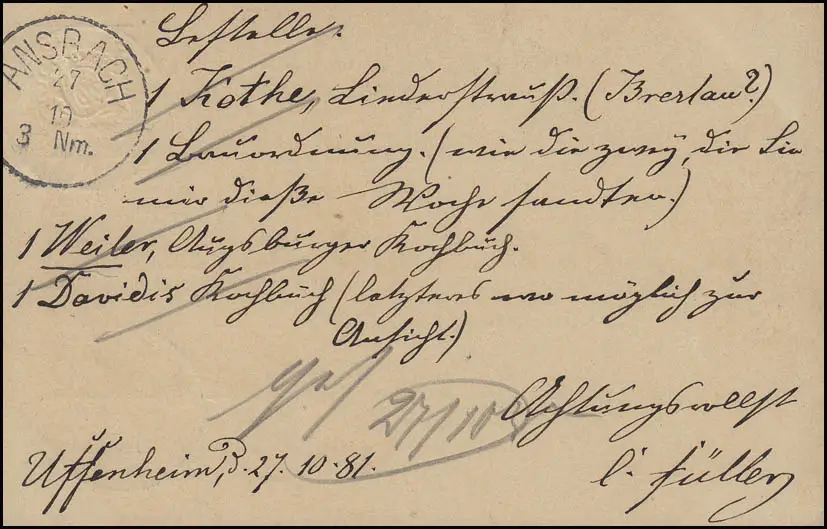 ANSBACH
27
10
3 Nm.
Bestelle:
1 Kothe, Liederstrauß. (Breslau?)
1 Bauordnung. (wie die zwey, die Sie
mir dieße Woche sandten.)
1 Weiler, Augsburger Kochbuch.
1 Davidis Kochbuch (letzteres wo möglich zur
Ansicht.)
27/10
Achtungsvollst
Uffenheim, d. 27. 10. 81.
C. Füller